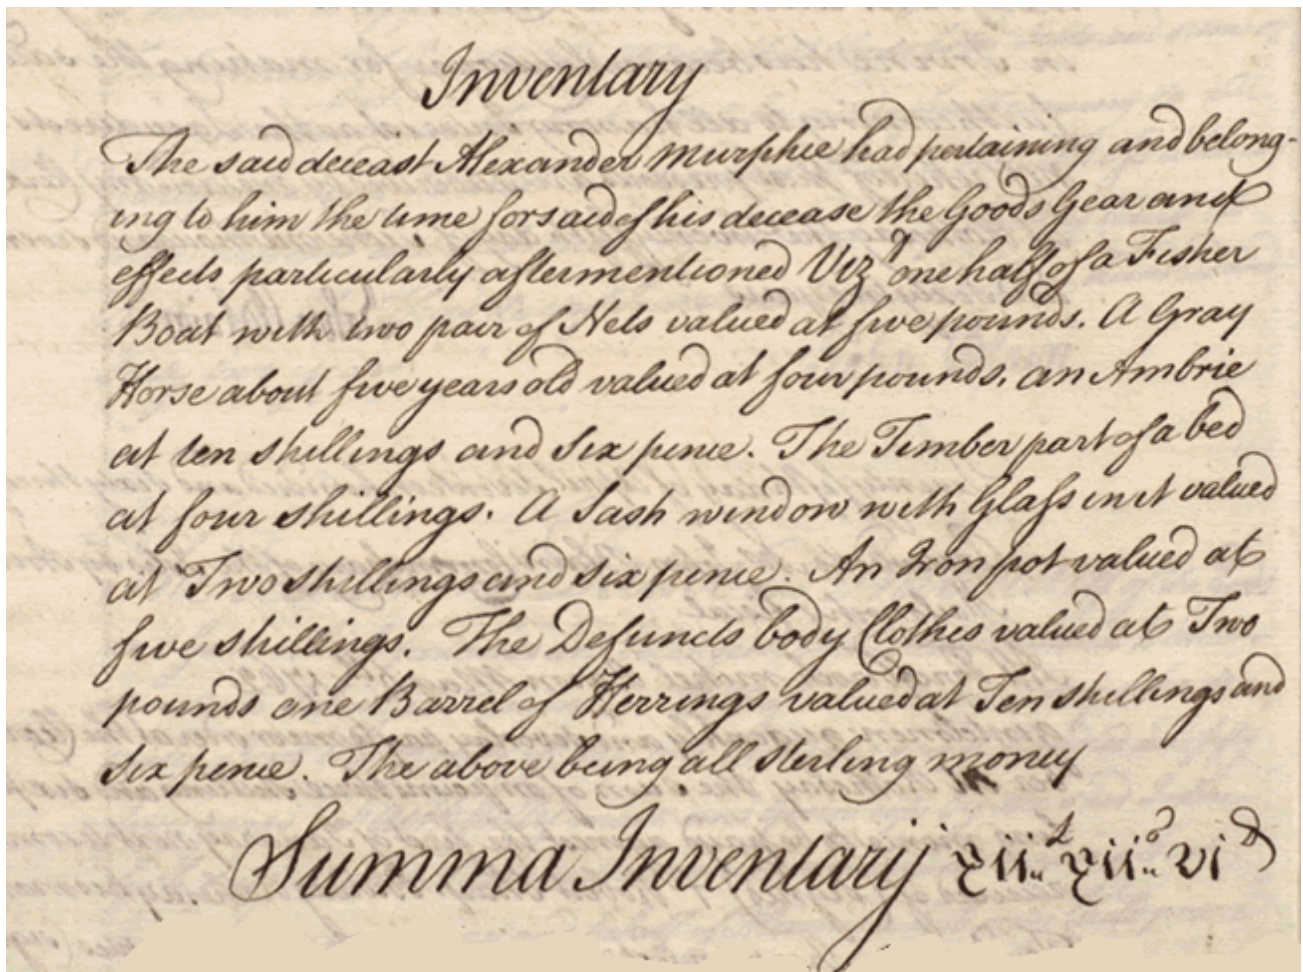 Inventary
The said deceast Alexander Murphie had pertaining and belong-
ing to him the time forsaid of his decease the Goods Gear and
effects particularly aftermentioned Vizt one half of a Fisher
Boat with two pair of Nets valued at five pounds. A Gray
Horse about five years old valued at four pounds. an Ambrie
at ten shillings and six pence. The Timber part of a bed
at four shillings. A Sash window with Glass in it valued
at Two shillings and six pence. An Iron pot valued at
five shillings. The Defuncts body Clothes valued at Two
pounds one Barrel of Herrings valued at Ten shillings and
six pence. The above being all sterling money
Summa Inventarij xii L xii s vi d